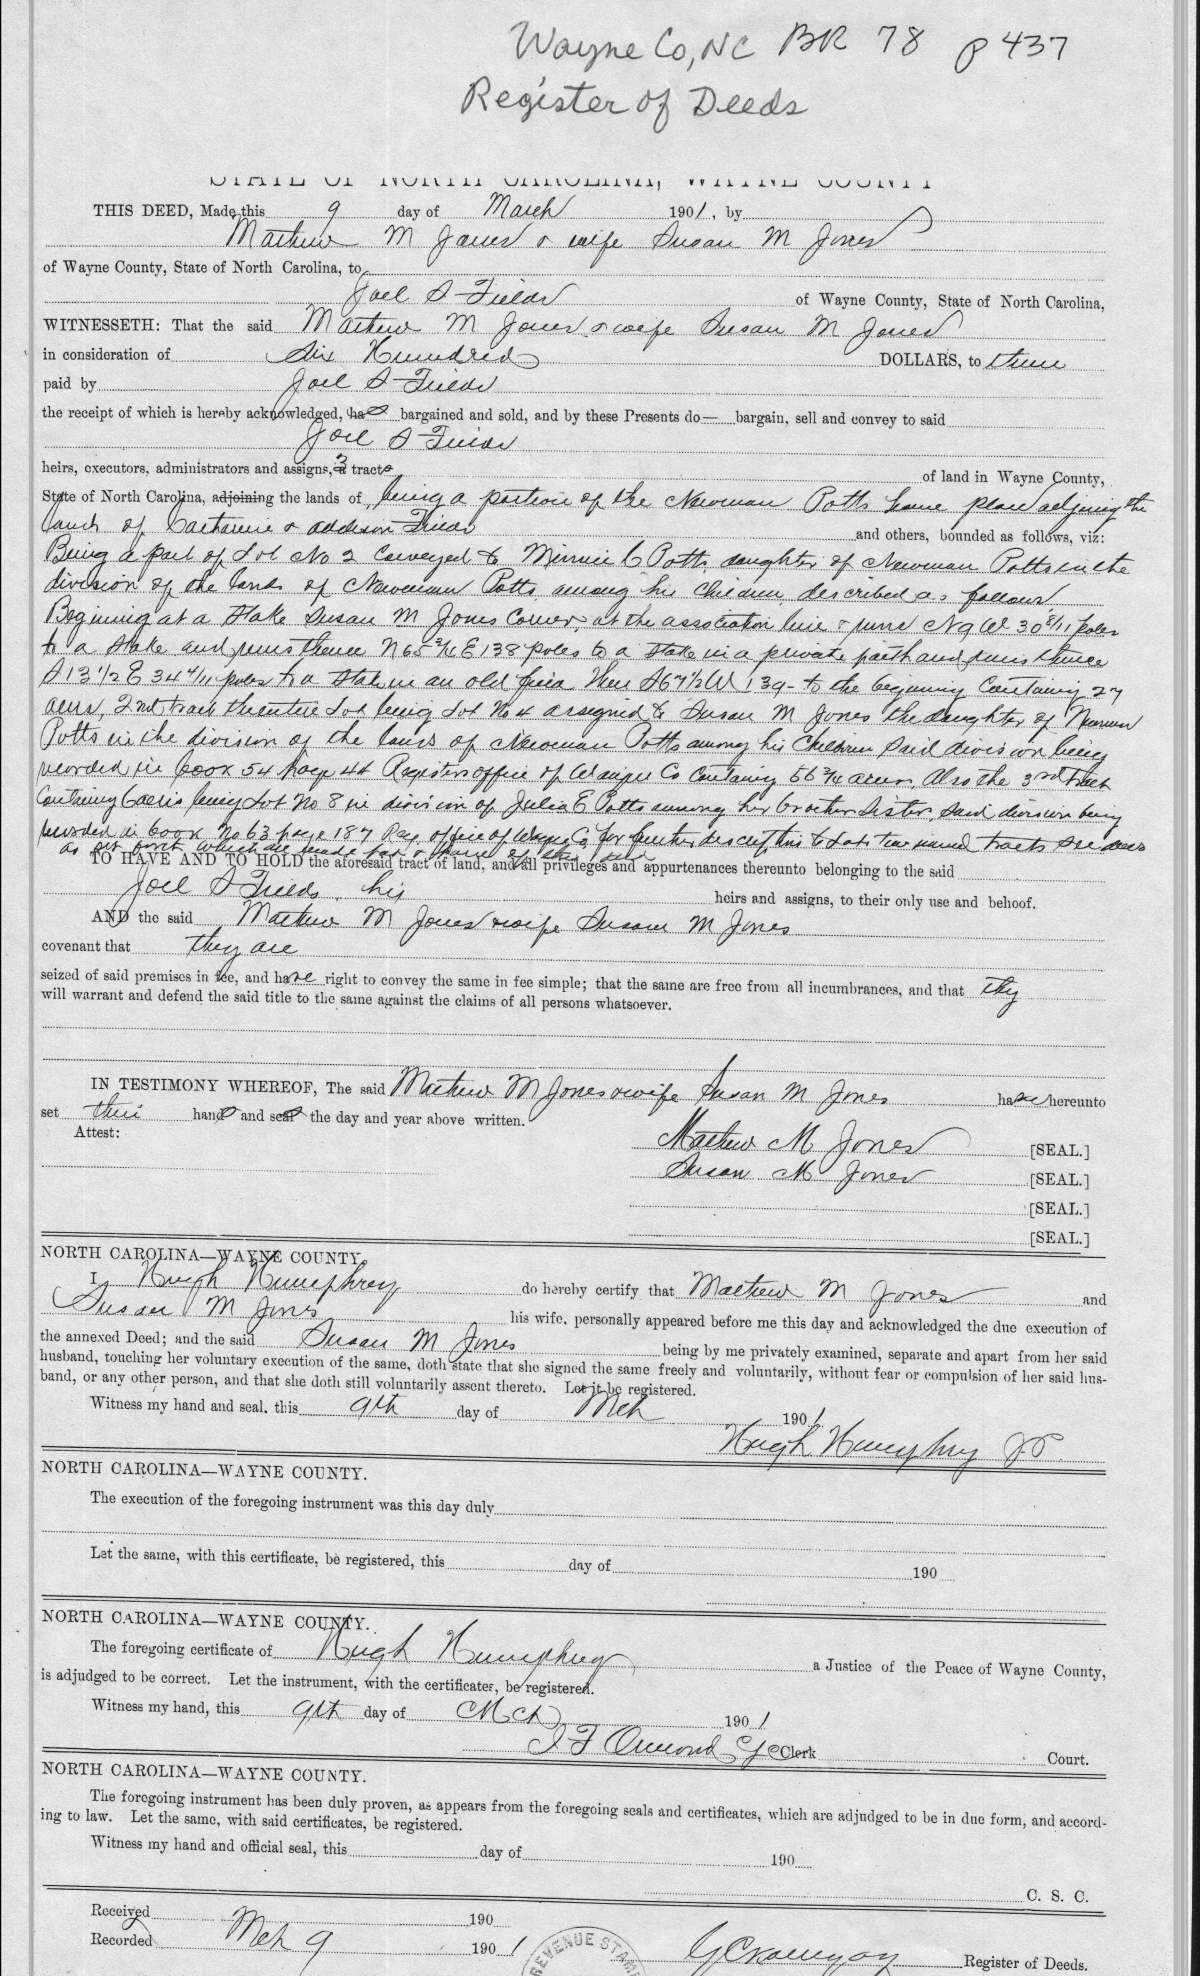 Wayne Co, NC BK 78 p 437
Register of Deeds
STATE OF NORTH CAROLINA, WAYNE COUNTY
THIS DEED, Made this 9 day of March 1901, by
Mathew M Jones & wife Susan M Jones
of Wayne County, State of North Carolina, to
Joel S Fields of Wayne County, State of North Carolina,
WITNESSETH: That the said Mathew M Jones & wife Susan M Jones
in consideration of Six Hundred DOLLARS, to them
paid by Joel S Fields
the receipt of which is hereby acknowledged, ha bargained and sold, and by these Presents do— bargain, sell and convey to said
Joel S Fields
heirs, executors, administrators and assigns, 3 tracts of land in Wayne County,
State of North Carolina, adjoining the lands of being a portion of the Newman Potts home place adjoining the
lands of Catharine & Addison Fields and others, bounded as follows, viz:
Being a part of Lot No 2 Conveyed to Minnie C Potts, daughter of Newman Potts in the
division of the lands of Newman Potts among his Children, described as follows,
Beginning at a Stake Susan M Jones Corner, at the association line & runs N 9 W 30 8/11 poles
to a Stake and runs thence N 65 E 138 poles to a Stake in a private path and runs thence
S 13 1/2 E 34 4/11 poles to a Stake in an old field Then S 67 1/2 W 139 - to the beginning Containing 27
acres, 2nd tract the entire Lot being Lot No 4 assigned to Susan M Jones the daughter of Newman
Potts in the division of the lands of Newman Potts among his Children Said division being
recorded in book 54 page 44 Registers office of Wayne Co Containing 56 acres, Also the 3rd tract
Containing 6 acres being Lot No 8 in division of Julia E Potts among her brother Sister, said division being
recorded in book No 63 page 187 Reg office of Wayne Co for further description to Lots named tracts see deeds
as set forth which are made
TO HAVE AND TO HOLD the aforesaid tract of land, and all privileges and appurtenances thereunto belonging to the said
Joel S Fields his heirs and assigns, to their only use and behoof.
AND the said Mathew M Jones & wife Susan M Jones
covenant that they are
seized of said premises in fee, and have right to convey the same in fee simple; that the same are free from all incumbrances, and that they
will warrant and defend the said title to the same against the claims of all persons whatsoever.
IN TESTIMONY WHEREOF, The said Mathew M Jones & wife Susan M Jones have hereunto
set their hands and seals the day and year above written.
Attest:
Mathew M Jones [SEAL.]
Susan M Jones [SEAL.]
[SEAL.]
[SEAL.]
NORTH CAROLINA—WAYNE COUNTY.
I Hugh Humphrey do hereby certify that Mathew M Jones and
Susan M Jones his wife, personally appeared before me this day and acknowledged the due execution of
the annexed Deed; and the said Susan M Jones being by me privately examined, separate and apart from her said
husband, touching her voluntary execution of the same, doth state that she signed the same freely and voluntarily, without fear or compulsion of her said hus-
band, or any other person, and that she doth still voluntarily assent thereto. Let it be registered.
Witness my hand and seal, this 9th day of Mch 1901
Hugh Humphrey J.P.
NORTH CAROLINA—WAYNE COUNTY.
The execution of the foregoing instrument was this day duly
Let the same, with this certificate, be registered, this day of 190
NORTH CAROLINA—WAYNE COUNTY.
The foregoing certificate of Hugh Humphrey a Justice of the Peace of Wayne County,
is adjudged to be correct. Let the instrument, with the certificates, be registered.
Witness my hand, this 9th day of Mch 1901
I F Ormond Clerk Court.
NORTH CAROLINA—WAYNE COUNTY.
The foregoing instrument has been duly proven, as appears from the foregoing seals and certificates, which are adjudged to be in due form, and accord-
ing to law. Let the same, with said certificates, be registered.
Witness my hand and official seal, this day of 190
C. S. C.
Received 190
Recorded Mch 9 1901 Register of Deeds.
REVENUE STAMP